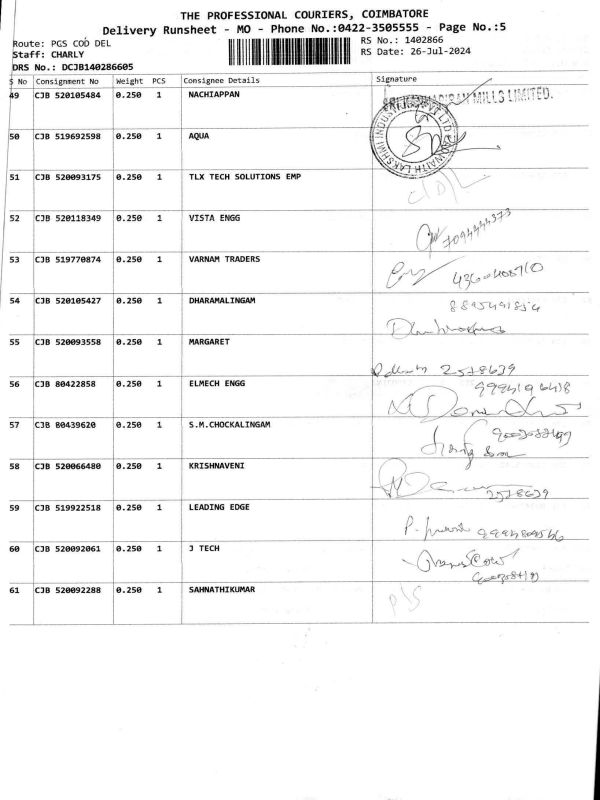 THE PROFESSIONAL COURIERS, COIMBATORE
Delivery Runsheet - MO - Phone No.:0422-3505555 - Page No.:5
Route: PGS COD DEL
RS No.: 1402866
Staff: CHARLY
RS Date: 26-Jul-2024
DRS No.: DCJB140286605
S No Consignment No Weight PCS Consignee Details Signature
49 CJB 520105484 0.250 1 NACHIAPPAN
MILLS LIMITED.
50 CJB 519692598 0.250 1 AQUA
51 CJB 520093175 0.250 1 TLX TECH SOLUTIONS EMP
52 CJB 520118349 0.250 1 VISTA ENGG
7094444373
53 CJB 519770874 0.250 1 VARNAM TRADERS
54 CJB 520105427 0.250 1 DHARAMALINGAM
55 CJB 520093558 0.250 1 MARGARET
2578639
56 CJB 80422858 0.250 1 ELMECH ENGG
57 CJB 80439620 0.250 1 S.M.CHOCKALINGAM
58 CJB 520066480 0.250 1 KRISHNAVENI
2578639
59 CJB 519922518 0.250 1 LEADING EDGE
60 CJB 520092061 0.250 1 J TECH
61 CJB 520092288 0.250 1 SAHNATHIKUMAR